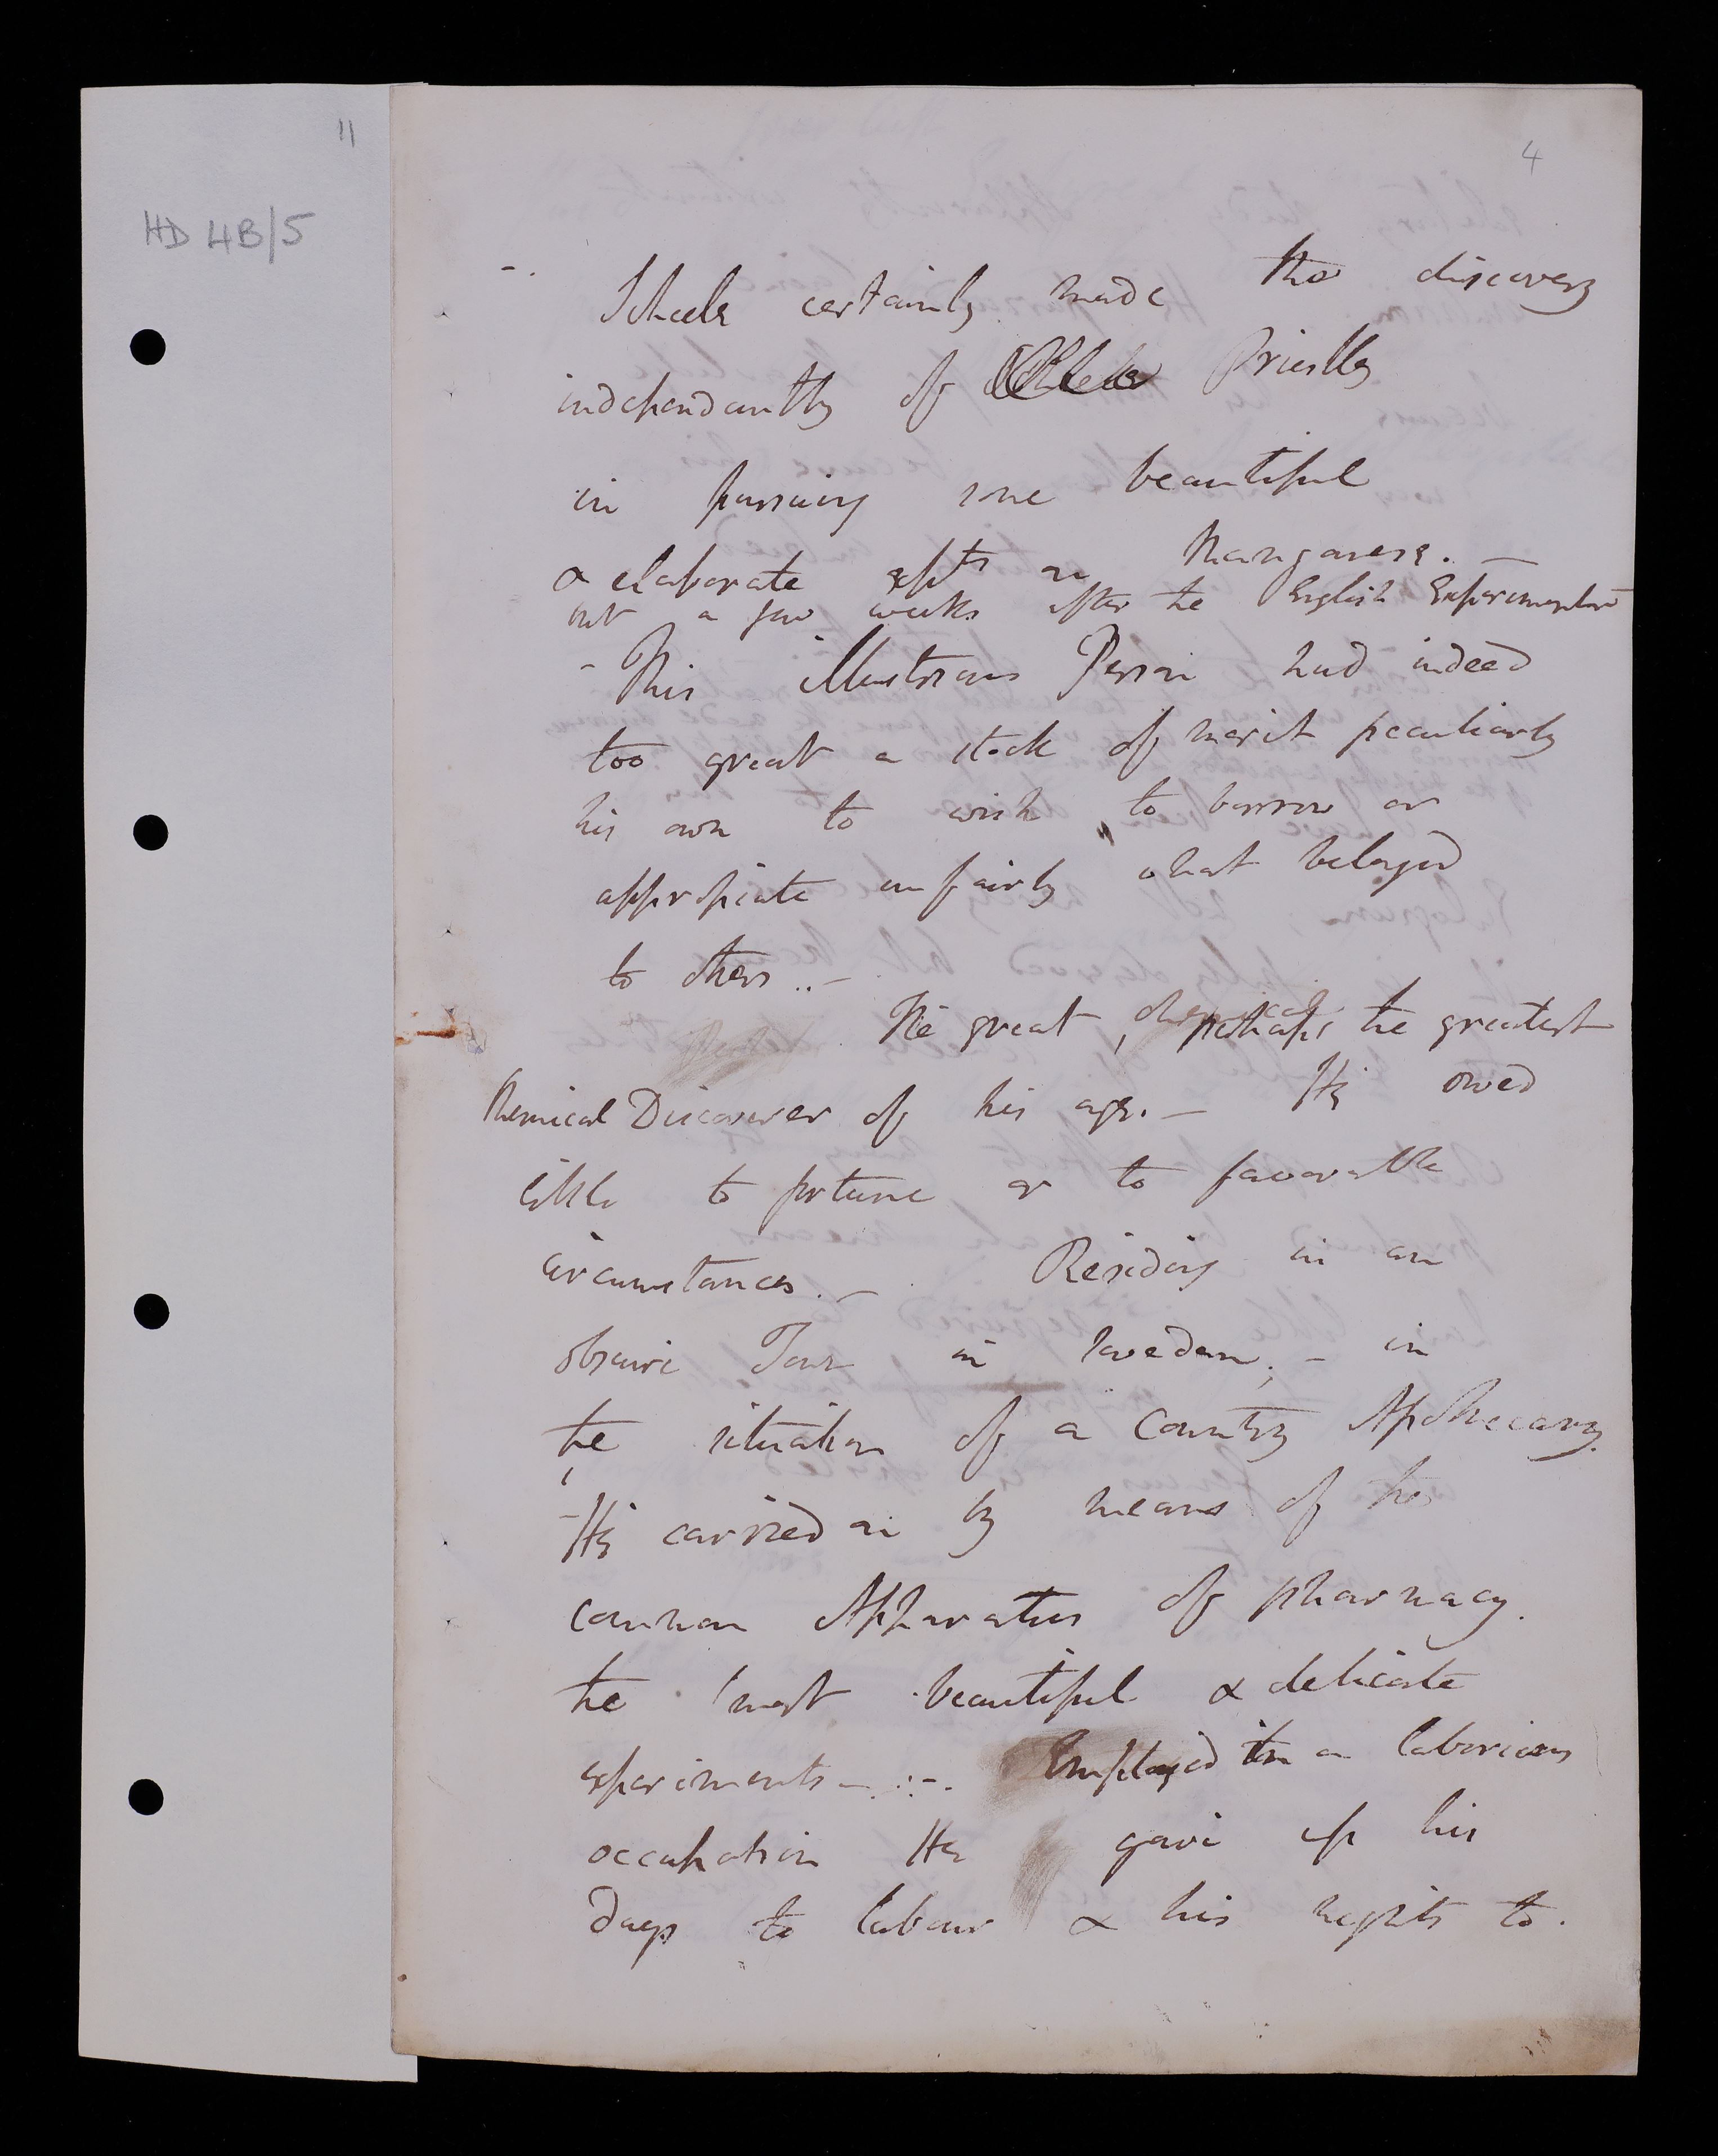 11
HD 4B/5
4
-. Scheele certainly made the discovery
independantly of Priestley
in pursuing some beautiful
& elaborate expts on Manganese. -
not a few weeks after the English Experimenter
- This illustrious Person had indeed
too great a stock of merit peculiarly
his own to wish to borrow or
appropiate unfairly what belonged
to others ..-
The great, perhaps the greatest
Chemical Discoverer of his age. - He owed
little to fortune or to favorable
circumstances. - Residing in an
obscure Town in Sweden; - in
the situation of a Country Apothecary.
- He carried on by means of the
common Apparatus of pharmacy.
the most beautiful & delicate
experiments - .:-. Employed in a laborious
occupation He gave up his
days to labour & his nights to.